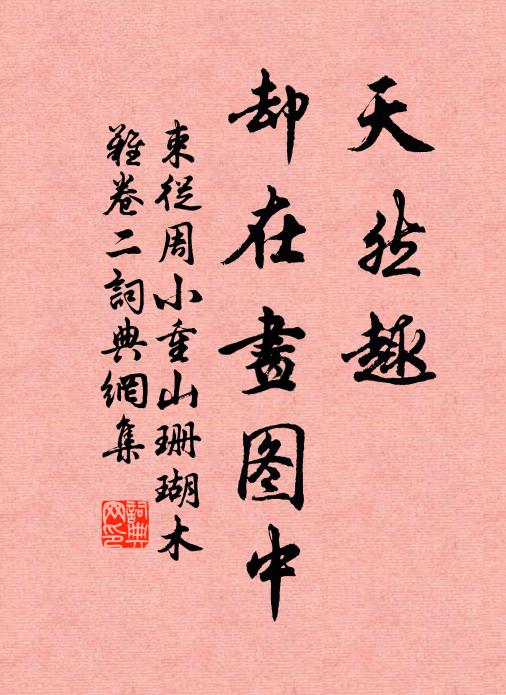 天然趣
却在畫图中
束從周小重山珊瑚木
難卷二詞典網集
詞典
网印